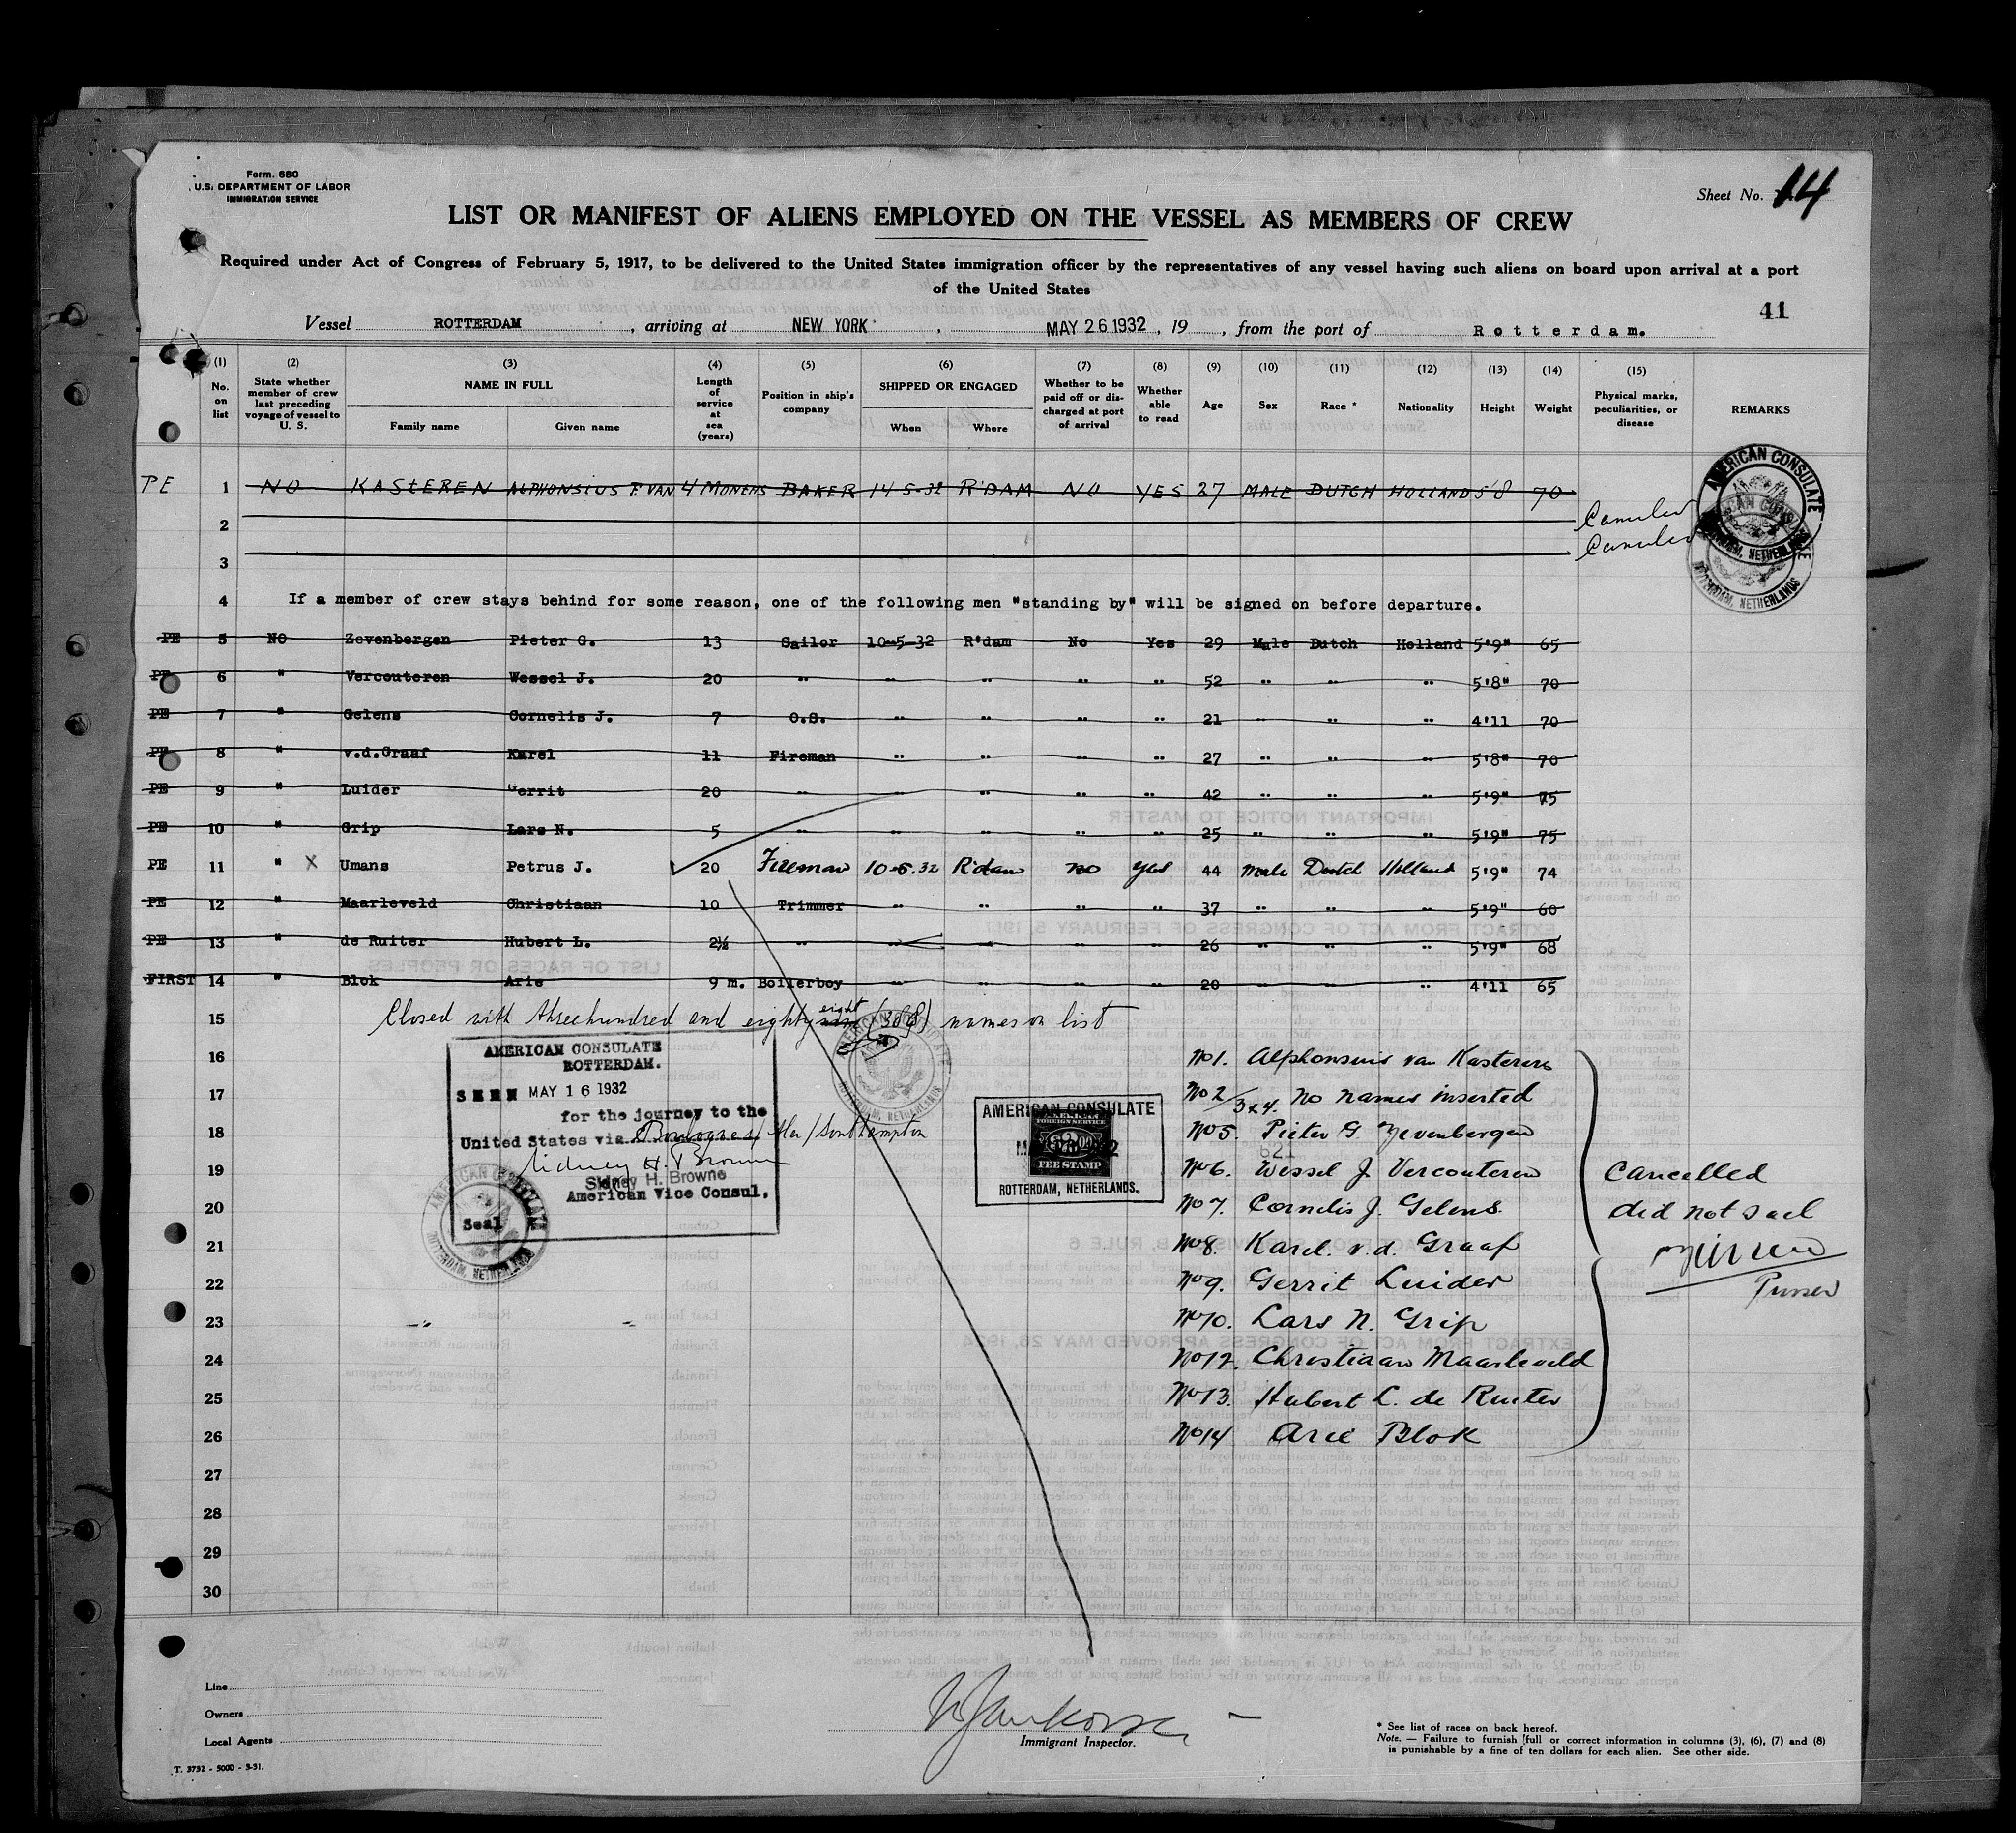 Form. 680
U.S. DEPARTMENT OF LABOR
IMMIGRATION SERVICE
Sheet No. 14
LIST OR MANIFEST OF ALIENS EMPLOYED ON THE VESSEL AS MEMBERS OF CREW
Required under Act of Congress of February 5, 1917, to be delivered to the United States immigration officer by the representatives of any vessel having such aliens on board upon arrival at a port
of the United States
41
Vessel ROTTERDAM , arriving at NEW YORK , MAY 26 1932 , 19 , from the port of Rotterdam.
(1) No. on list
(2) State whether member of crew last preceding voyage of vessel to U. S.
(3) NAME IN FULL
Family name Given name
(4) Length of service at sea (years)
(5) Position in ship's company
(6) SHIPPED OR ENGAGED
When Where
(7) Whether to be paid off or discharged at port of arrival
(8) Whether able to read
(9) Age
(10) Sex
(11) Race *
(12) Nationality
(13) Height
(14) Weight
(15) Physical marks, peculiarities, or disease
REMARKS
PE 1 NO KASTEREN ALPHONSIUS F. VAN 4 MONEHS BAKER 14 5-32 R'DAM NO YES 27 MALE DUTCH HOLLAND 5'8 70
2
3
4 If a member of crew stays behind for some reason, one of the following men "standing by" will be signed on before departure.
PE 5 NO Zevenbergen Pieter G. 13 Sailor 10-5-32 R'dam No Yes 29 Male Dutch Holland 5'9" 65
PE 6 " Vercouteren Wessel J. 20 " " " " " 52 " " " 5'8" 70
PE 7 " Gelens Cornelis J. 7 O.S. " " " " 21 " " " 4'11 70
PE 8 " v.d.Graaf Karel 11 Fireman " " " " 27 " " " 5'8" 70
PE 9 " Luider Gerrit 20 " " " " " 42 " " " 5'9" 75
PE 10 " Grip Lars N. 5 " " " " " 25 " " " 5'9" 75
PE 11 " X Umans Petrus J. 20 Fireman 10-5.32 R'dam no yes 44 male Dutch Holland 5'9" 74
PE 12 " Maarleveld Christiaan 10 Trimmer " " " " 37 " " " 5'9" 60
PE 13 " de Ruiter Hubert L. 2½ " " " " " 26 " " " 5'9" 68
FIRST 14 " Blok Arie 9 m. Boilerboy " " " " 20 " " " 4'11 65
15 Closed with threehundred and eighty eight (388) names on list
16
17
18
19
20
21
22
23
24
25
26
27
28
29
30
AMERICAN CONSULATE
ROTTERDAM.
SEEN MAY 16 1932
for the journey to the
United States via Boulogne s/Mer/Southampton
Sidney H. Browne
Sidney H. Browne
American Vice Consul.
Seal
AMERICAN CONSULATE
ROTTERDAM, NETHERLANDS
AMERICAN CONSULATE
FOREIGN SERVICE
FEE STAMP
ROTTERDAM, NETHERLANDS.
No 1. Alphonsius van Kasteren
No 2/3 x 4. No names inserted
No 5. Pieter G. Zevenbergen
No 6. Wessel J. Vercouteren
No 7. Cornelis J. Gelens.
No 8. Karel. v.d. Graaf
No 9. Gerrit Luider
No 10. Lars N. Grip
No 12. Christiaan Maarleveld
No 13. Hubert L. de Ruiter
No 14 Arie Blok
Cancelled
did not sail
Purser
Line
Owners
Local Agents
T. 3732 - 5000 - 3-31.
Immigrant Inspector.
* See list of races on back hereof.
Note. — Failure to furnish full or correct information in columns (3), (6), (7) and (8)
is punishable by a fine of ten dollars for each alien. See other side.